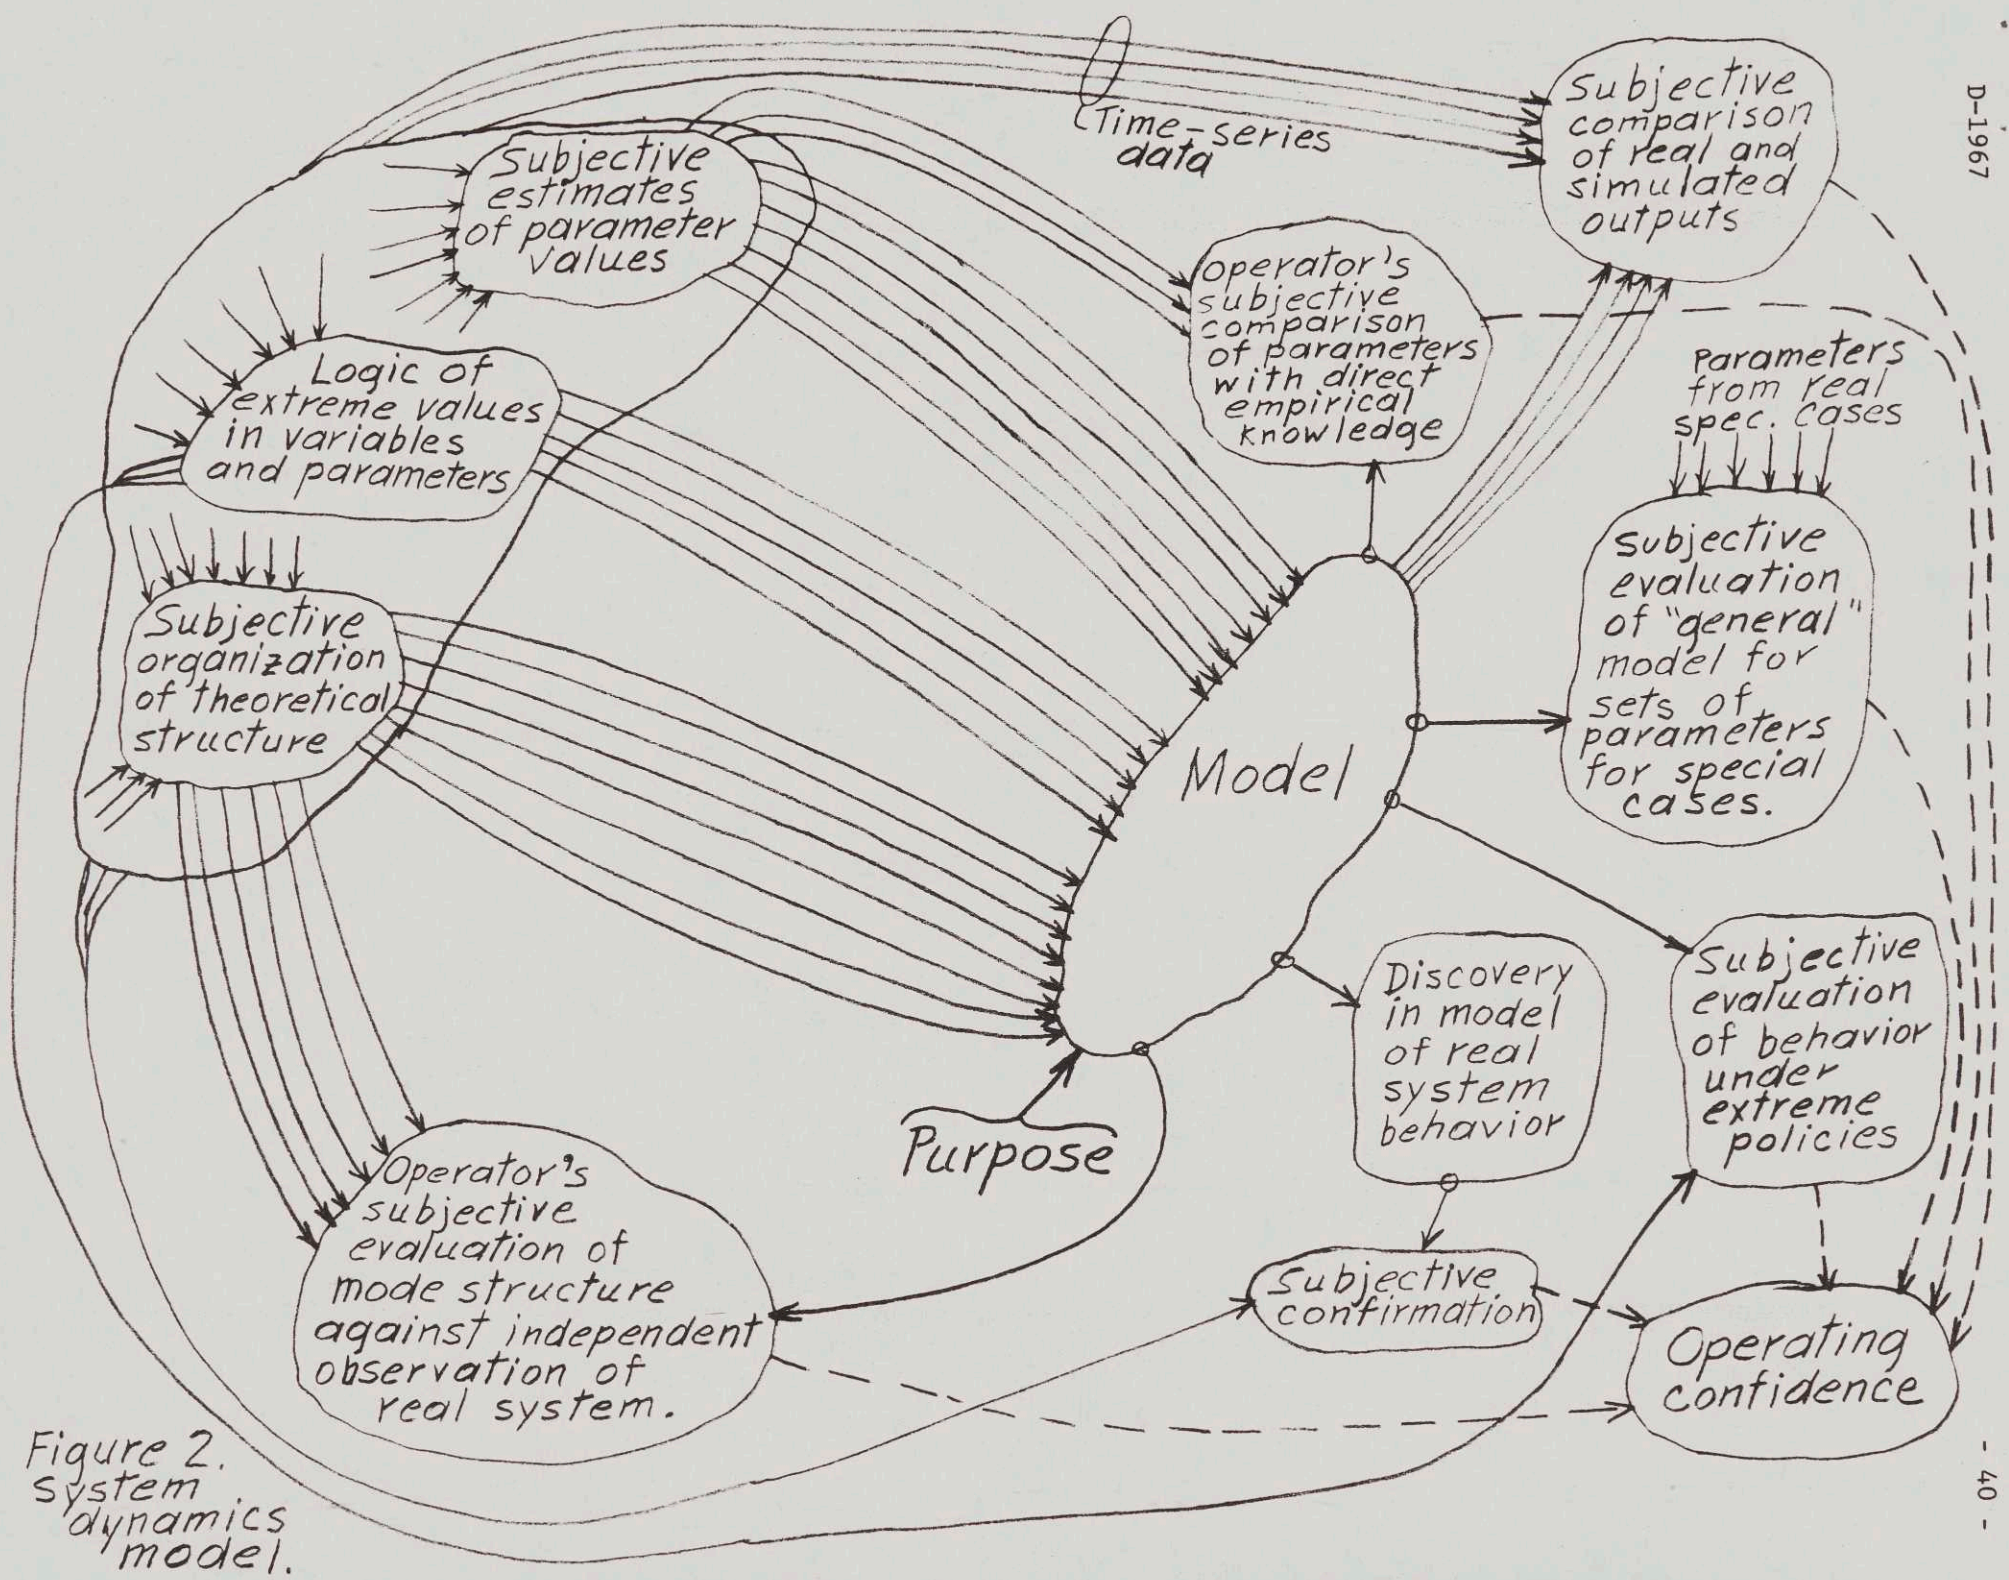 D-1967
Time-series
data
Subjective
comparison
of real and
simulated
outputs
Subjective
estimates
of parameter
values
Operator's
subjective
comparison
of parameters
with direct
empirical
knowledge
Logic of
extreme values
in variables
and parameters
Parameters
from real
spec. cases
Subjective
evaluation
of "general"
model for
sets of
parameters
for special
cases.
Subjective
organization
of theoretical
structure
Model
Discovery
in model
of real
system
behavior
Subjective
evaluation
of behavior
under
extreme
policies
Purpose
Operator's
subjective
evaluation of
mode structure
against independent
observation of
real system.
Subjective
confirmation
Operating
confidence
Figure 2.
System
dynamics
model.
- 40 -